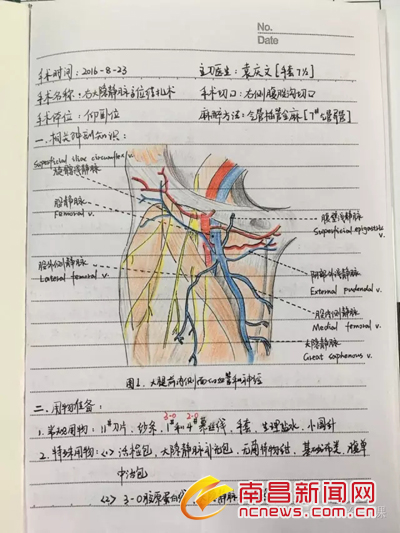 No.
Date
手术时间：2016-8-23 主刀医生：袁庆文［手套7½］
手术名称：右大隐静脉高位结扎术 手术切口：右侧腹股沟切口
手术体位：仰卧位 麻醉方法：全管插管全麻［7#气管］
一、相关解剖知识：
Superficial iliac circumflex v.
旋髂浅静脉
股静脉
Femoral v.
股外侧静脉
Lateral femoral v.
腹壁浅静脉
Superficial epigastric v.
阴部外浅静脉
External pudendal v.
股内侧静脉
Medial femoral v.
大隐静脉
Great saphenous v.
图1、大腿前内侧面的血管和神经
二、用物准备：
3-0 2-0
1、常规用物：11#刀片、纱条、1#和4#慕丝线、手套、生理盐水、小圆针
2、特殊用物：<1> 活检包、大隐静脉补充包、无菌持物钳、基础布类、腹单
中治包
<2> 3-0胶原蛋白线
南昌新闻网
ncnews.com.cn